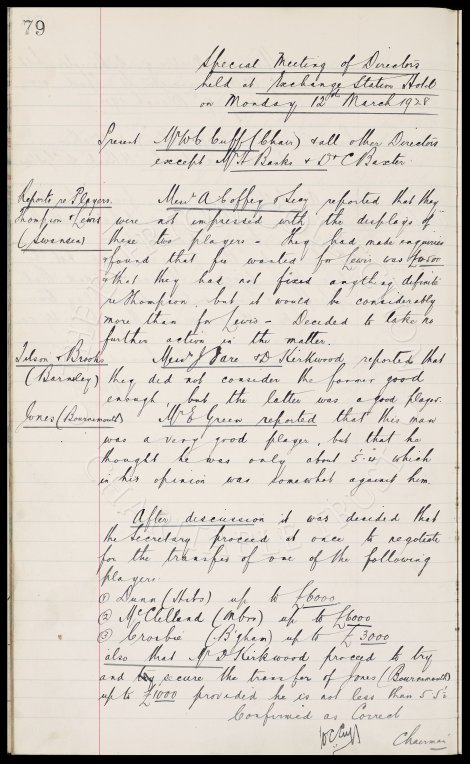 79
Special Meeting of Directors
held at Exchange Station Hotel
on Monday, 12th March 1928
Present Mr W C Cuff (Chair) & all other Directors
except Mr A Banks & Dr C Baxter.
Reports re Players.
Thompson & Lewis
(Swansea)
Messrs A Coffey & Seay reported that they
were not impressed with the displays of
these two players – they had made enquiries
& found that fee wanted for Lewis was
& that they had not fixed anything definite
re Thompson, but it would be considerably
more than for Lewis – Decided to take no
further action in the matter.
Tilson & Brooks
(Barnsley)
Messrs J Fare & D. Kirkwood reported that
they did not consider the former good
enough, but the latter was a good player.
Jones (Bournemouth)
Mr E Green reported that this man
was a very good player, but that he
thought he was only about 5'4" which
in his opinion was somewhat against him.
After discussion it was decided that
the Secretary proceed at once to negotiate
for the transfer of one of the following
players:
① Dunn (Hibs) up to £6000
② McClelland (Mbro) up to £6000
③ Crosbie (B'gham) up to £3000
also that Mr D. Kirkwood proceed to try
and secure the transfer of Jones (Bournemouth)
up to £1000 provided he is not less than 5'5"
Confirmed as Correct
W C Cuff
Chairman